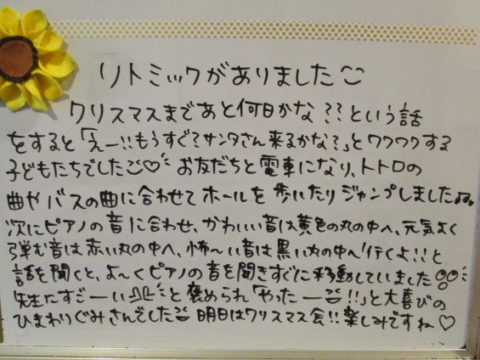 リトミックがありました
クリスマスまであと何日かな??という話
をすると「えー!!もうすぐ?サンタさん来るかな?」とワクワクする
子どもたちでした♡ お友だちと電車になり、トトロの
曲やバスの曲に合わせてホールを歩いたりジャンプしました♪
次にピアノの音に合わせ、かわいい音は黄色の丸の中へ、元気よく
弾む音は赤い丸の中へ、怖〜い音は黒い丸の中へ行くよ!!と
話を聞くと、よ〜くピアノの音を聞きすぐに移動していました
先生にすごーーいと褒められ「やったー!!」と大喜びの
ひまわりぐみさんでした 明日はクリスマス会!!楽しみですね♡